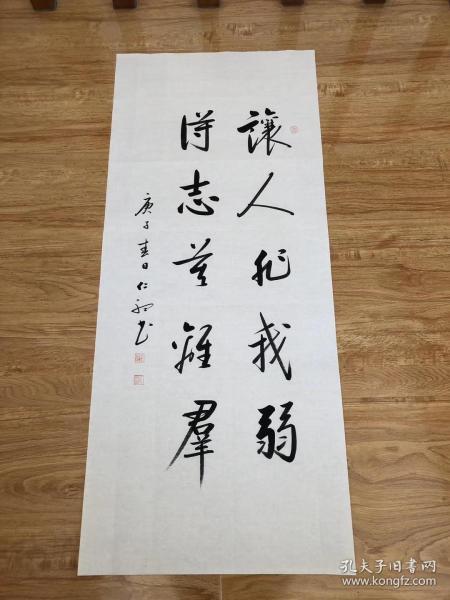 讓人非我弱
得志莫離羣
庚子春日仁初书
孔夫子旧书网
www.kongfz.com